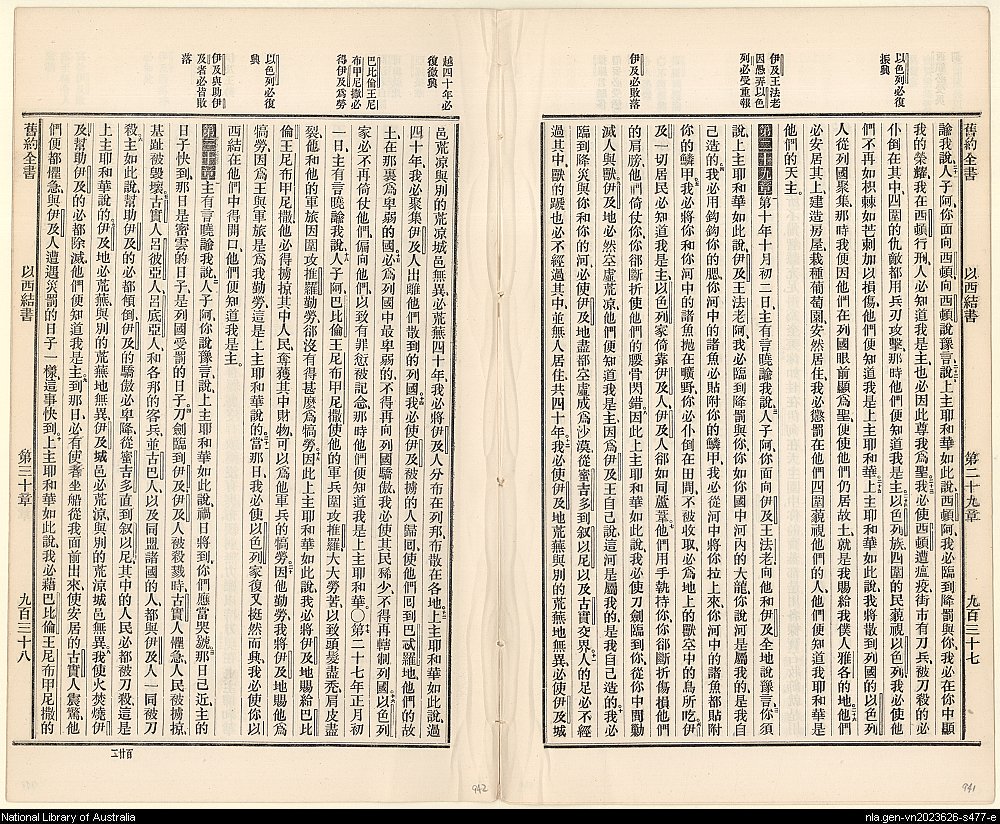 以色列必復振興
伊及王法老因愚弄以色列必受重報
伊及必敗落
舊約全書 以西結書 第二十九章 九百三十七
諭我說、人子阿、你面向西頓、向西頓說豫言、說上主耶和華如此說、西頓阿、我必臨到降罰與你、我必在你中顯
我的榮耀、我在西頓行刑、人必知道我是主、也必因此尊我為聖、我必使西頓遭瘟疫、街市有刀兵、被刀殺的必
仆倒在其中、四圍的仇敵都用兵刃攻擊、那時他們便知道我是主、以色列族四圍的民藐視以色列、我必使他
們不再如枳棘如芒刺加以損傷、他們便知道我是上主耶和華、上主耶和華如此說、我將散到列國的以色列
人從列國聚集、那時我便因他們在列國眼前顯為聖、便使他們仍居故土、就是我賜給我僕人雅各的地、他們
必安居其上、建造房屋、栽種葡萄園、安然居住、我必懲罰在他們四圍藐視他們的人、他們便知道我耶和華是
他們的天主、
第二十九章 第十年十月初二日、主有言曉諭我說、人子阿、你面向伊及王法老、向他和伊及全地說豫言、你須
說、上主耶和華如此說、伊及王法老阿、我必臨到降罰與你、你如你國中河內的大龍、你說河是屬我的、是我自
己造的、我必用鉤鉤你的腮、你河中的諸魚必貼附你的鱗甲、我必從河中將你拉上來、你河中的諸魚都貼附
你的鱗甲、我必將你和你河中的諸魚拋在曠野、你必仆倒在田間、不被收取、必為地上的獸空中的鳥所吃、伊
及一切居民必知道我是主、以色列家倚靠伊及人、伊及人卻如同蘆葦、他們用手執持你、你卻斷折傷損他們
的肩膀、他們倚仗你、你卻斷折使他們的腰骨閃錯、因此上主耶和華如此說、我必使刀劍臨到你、從你中間勦
滅人與獸、伊及地必然空虛荒涼、他們便知道我是主、因伊及王自己說、這河是屬我的、是我自己造的、我必
臨到降災與你和你的河、必使伊及地盡都空虛、成為沙漠、從蜜吉多到敘以尼、以及古實交界、人的足必不經
過其中、獸的蹏也必不經過其中、並無人居住、共四十年、我必使伊及地荒蕪、與別的荒蕪地無異、必使伊及城
越四十年必復徵興
巴比倫王尼布甲尼撒必得伊及為勞
以色列必復興
伊及與助伊及者必皆敗落
邑荒涼與別的荒涼城邑無異、必荒蕪四十年、我必將伊及人分布在列邦、布散在各地、上主耶和華如此說、過
四十年、我必聚集伊及人、出離他們散到的列國、我必使伊及被擄的人歸回、使他們回到巴忒羅地、他們的故
土、在那裏為卑弱的國、必為列國中最卑弱的、不得再向列國驕傲、我必使其民稀少、不得再轄制列國、以色列
家必不再倚仗他們、偏向他們、以致有罪愆被記念、那時他們便知道我是上主耶和華、〇第二十七年正月初
一日、主有言曉諭我說、人子阿、巴比倫王尼布甲尼撒使他的軍兵圍攻推羅、大大勞苦、以致頭髮盡禿、肩皮盡
裂、他和他的軍旅因圍攻推羅勤勞、卻沒有得甚麼為犒勞、因此上主耶和華如此說、我必將伊及地賜給巴比
倫王尼布甲尼撒、他必得擄掠其中人民、奪獲其中財物、可以為他軍兵的犒勞、因他勤勞、我將伊及地賜他為
犒勞、因為王與軍旅是為我勤勞、這是上主耶和華說的、當那日、我必使以色列家復又挺然而興、我必使你以
西結在他們中得開口、他們便知道我是主。
第三十章 主有言曉諭我說、人子阿、你說豫言、說上主耶和華如此說、禍日將到、你們應當哭號、那日已近、主的
日子快到、那日是密雲的日子、是列國受罰的日子、刀劍臨到伊及、伊及人被殺戮時、古實人懼怠、人民被擄掠、
基趾被毀壞、古實人呂彼亞人呂底亞人和各邦的客兵、並古巴人、以及同盟諸國的人、都與伊及人一同被刀
殺、主如此說、幫助伊及的必都傾倒、伊及的驕傲必卑降、從蜜吉多直到敘以尼、其中的人民必都被刀殺、這是
上主耶和華說的、伊及地必荒蕪與別的荒蕪地無異、伊及城邑必荒涼與別的荒涼城邑無異、我使火焚燒伊
及、幫助伊及的必都除滅、他們便知道我是主、到那日、必有使者坐船從我面前出來、使安居的古實人震驚、他
們便都懼急、與伊及人遭遇災罰的日子一樣、這事快到、上主耶和華如此說、我必藉巴比倫王尼布甲尼撒的
舊約全書 以西結書 第三十章 九百三十八
百廿二
942
941
National Library of Australia
nla.gen-vn2023626-s477-e